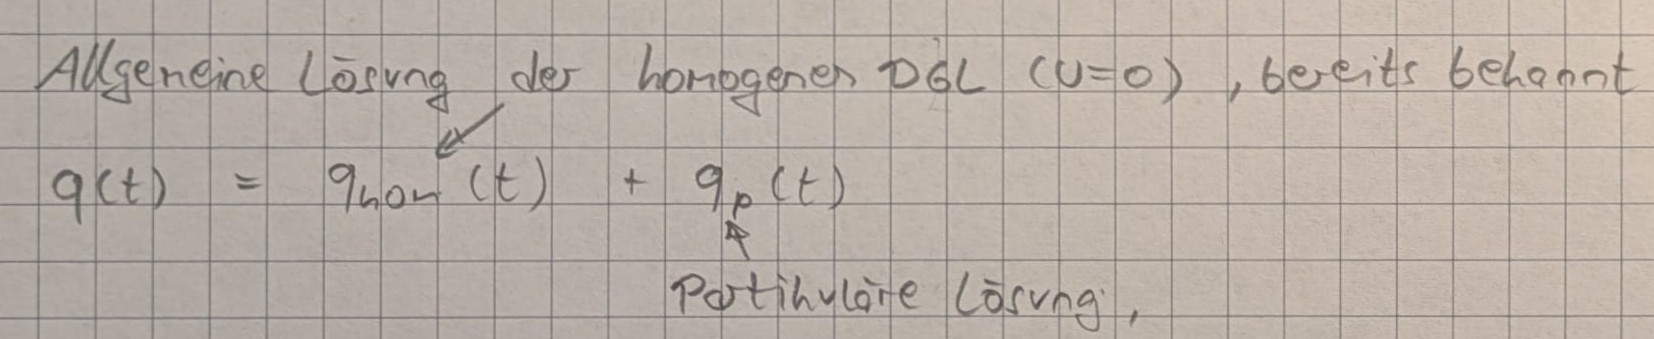 Allgemeine Lösung der homogenen DGL (U=0), bereits bekannt
q(t) = qhom(t) + qp(t)
Partikuläre Lösung,